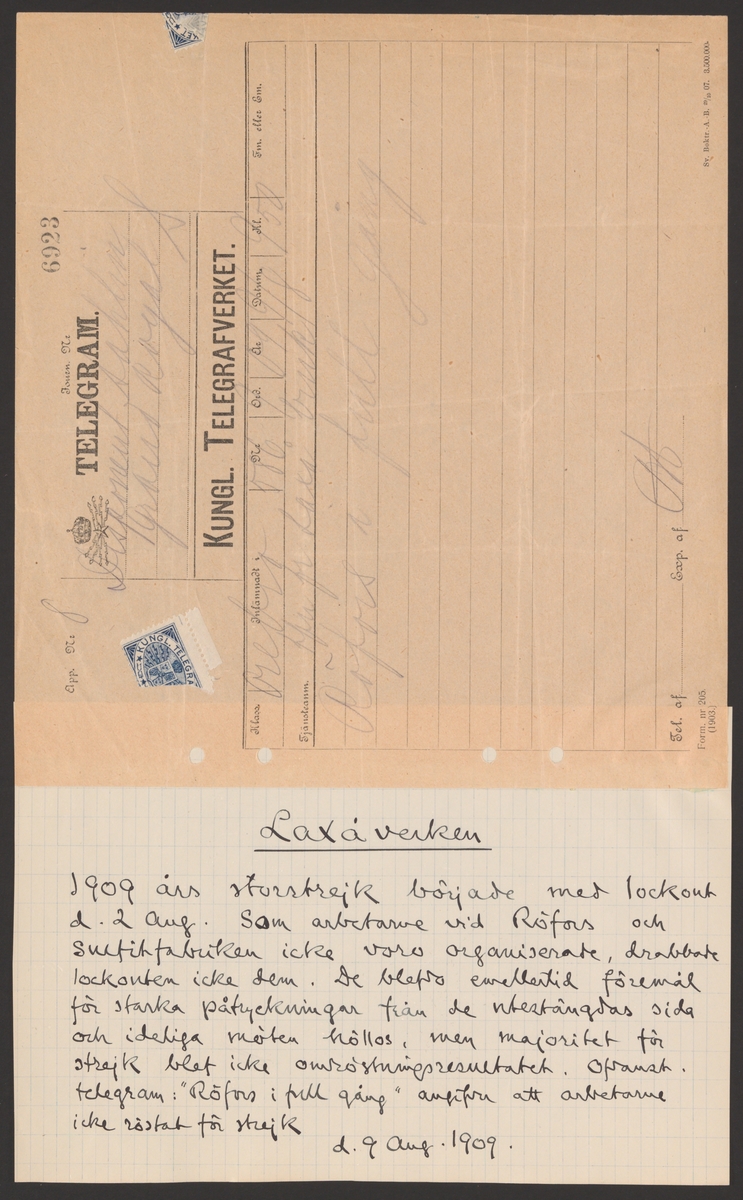 6923
Journ. Nr
TELEGRAM.
Disponent Sahlin
Grand Royal S
KUNGL. TELEGRAFVERKET.
Epp. Nr 8
KUNGL. TELEGRA
Klass Inlämnadt Nr Ord. Är Datum. Kl. Fm. eller Em.
Tjänsteanm.
Röfors i full gång
Tel. af Exp. af
Form. nr 205.
(1903.)
Sv. Boktr.-A.-B. 07. 3,500,000.
Laxåverken
1909 års storstrejk började med lockout
d. 2 Aug. Som arbetarne vid Röfors och
Sulfitfabriken icke voro organiserade, drabbade
lockouten icke dem. De blefvo emellertid föremål
för starka påtryckningar från de utestängdas sida
och ideliga möten höllos, men majoritet för
strejk blef icke omröstningsresultatet. Ofvanst.
telegram: "Röfors i full gång" angifva att arbetarne
icke röstat för strejk
d. 9 Aug. 1909.